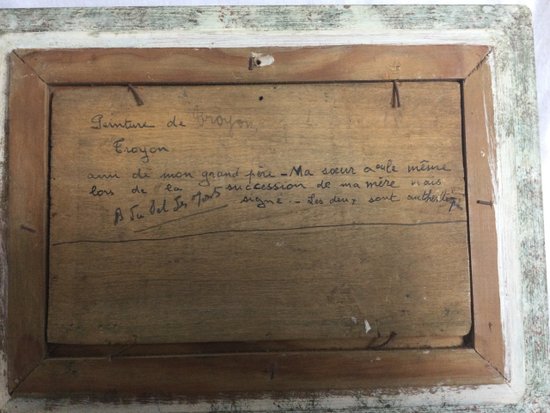 Peinture de Troyon
Troyon
ami de mon grand père - Ma sœur a eu le même
lors de la succession de ma mère mais
signé - Les deux sont authentiques